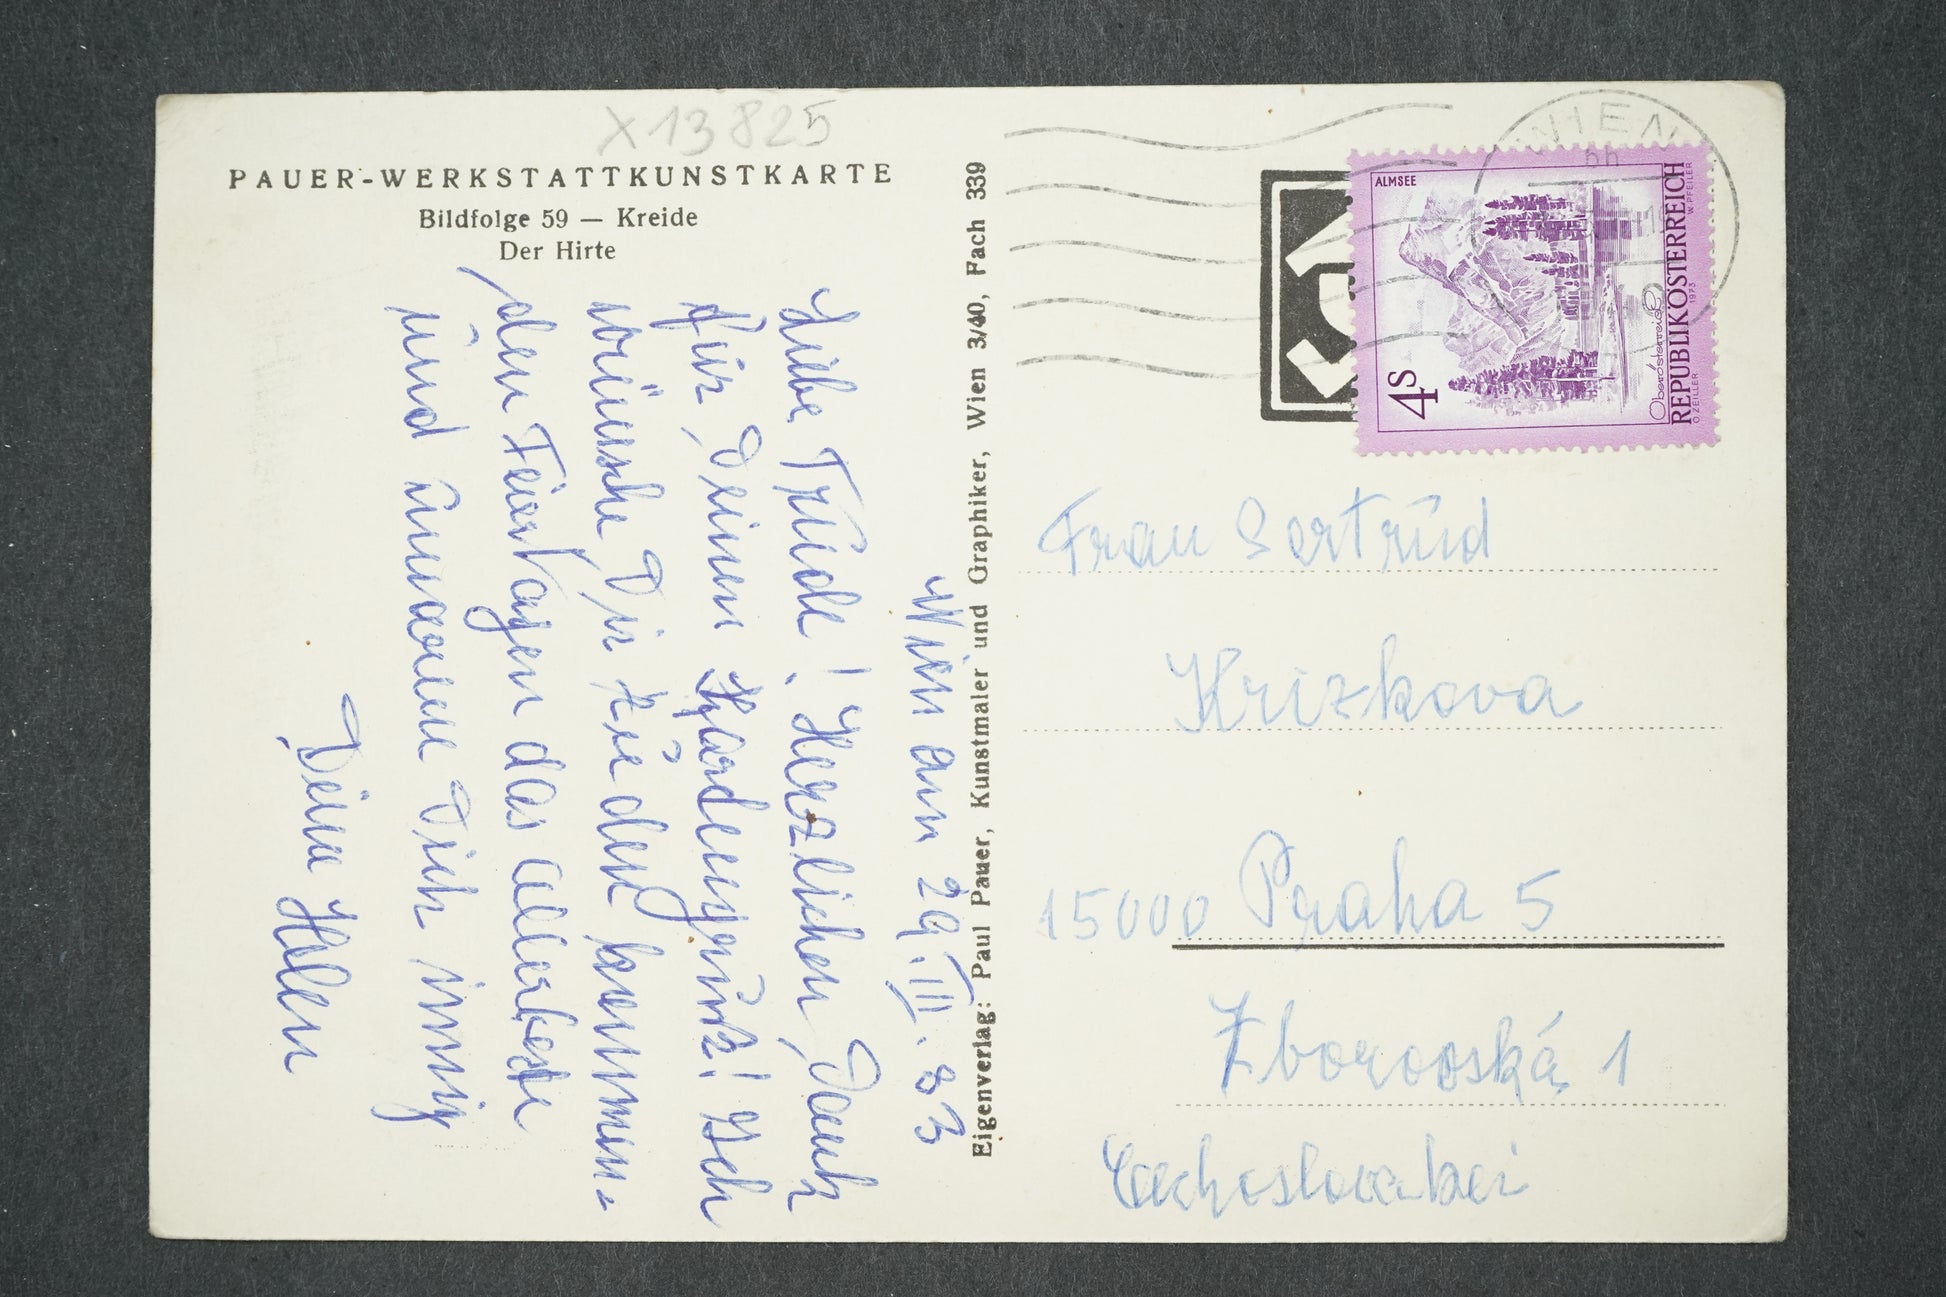 X 13825
PAUER-WERKSTATTKUNSTKARTE
Bildfolge 59 — Kreide
Der Hirte
Wien am 29.III.83
Liebe Trude! Herzlichen Dank
für Deinen Kardengruß! Ich
wünsche Dir zu den kommen-
den Feiertagen das allerbeste
und umarme Dich innig
Deine Helen
Eigenverlag: Paul Pauer, Kunstmaler und Graphiker, Wien 3/40, Fach 339
WIEN
ALMSEE
4S
Oberösterreich
REPUBLIK ÖSTERREICH
O. ZEILLER 1973 W. PFEILER
Frau Gertrud
Krizkova
15000 Praha 5
Zborovská 1
Cechoslovakei